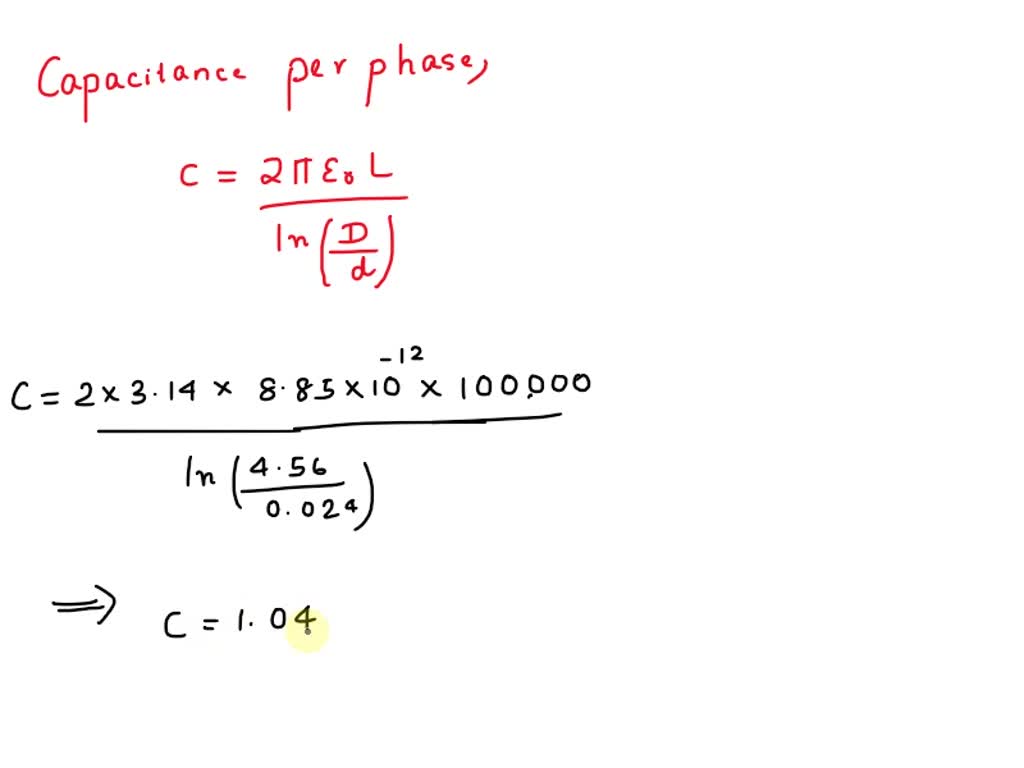 Capacitance per phase,
C = 2πε₀L / ln(D/d)
C = 2 × 3.14 × 8.85 × 10⁻¹² × 100,000 / ln(4.56/0.024)
⇒ C = 1.04